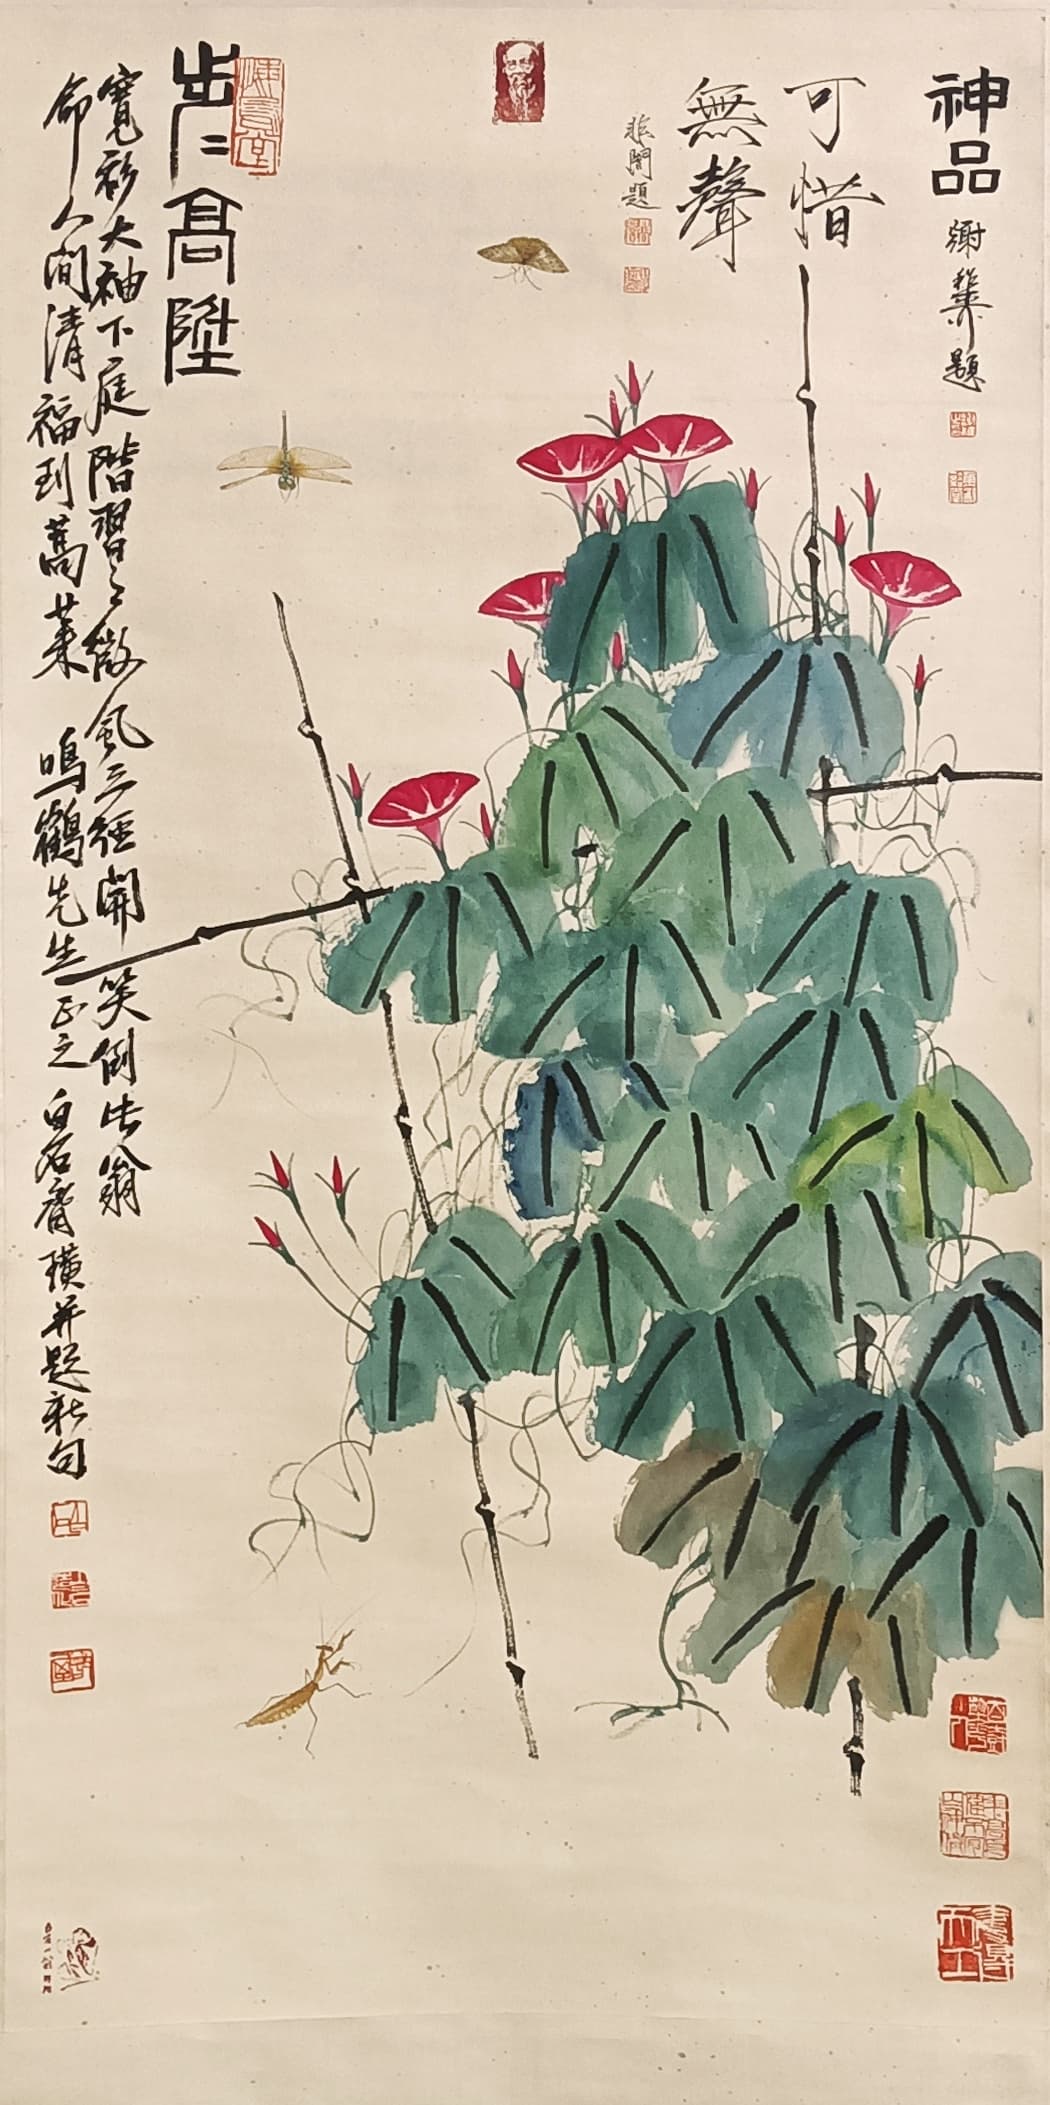 神品
謝稚題
可惜
無聲
非闇題
步〻高陞
寬衫大袖下庭階習〻微風三徑開笑倒此翁
命人間清福到蒿萊 鳴鶴先生正之 白石齋璜并題新句